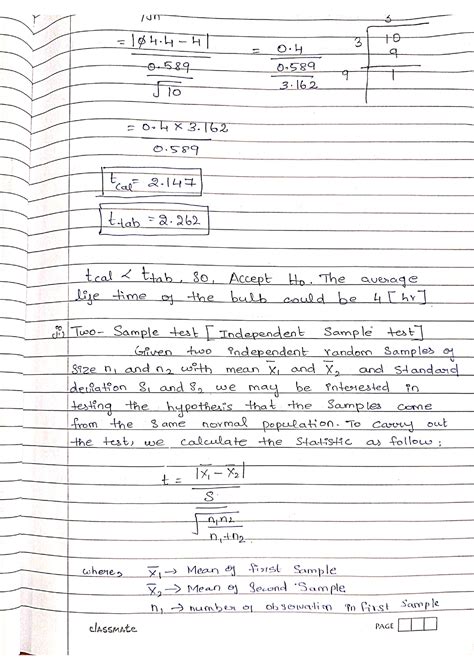 = |4.4 - 4|
0.589
√10
= 0.4
0.589
3.162
3
3 | 10
9
9 | 1
= 0.4 × 3.162
0.589
t cal = 2.147
t tab = 2.262
tcal < ttab, So, Accept H0. The average
life time of the bulb could be 4 [hr].
ii) Two-Sample test [Independent Sample test]
Given two independent random samples of
size n1 and n2 with mean X̄1 and X̄2 and standard
deviation S1 and S2 we may be interested in
testing the hypothesis that the samples come
from the same normal population. To carry out
the test, we calculate the statistic as follow:
t = |X̄1 - X̄2|
S
√ n1n2
n1+n2
where, X̄1 → Mean of first Sample
X̄2 → Mean of Second Sample
n1 → number of observation in first Sample
classmate
PAGE